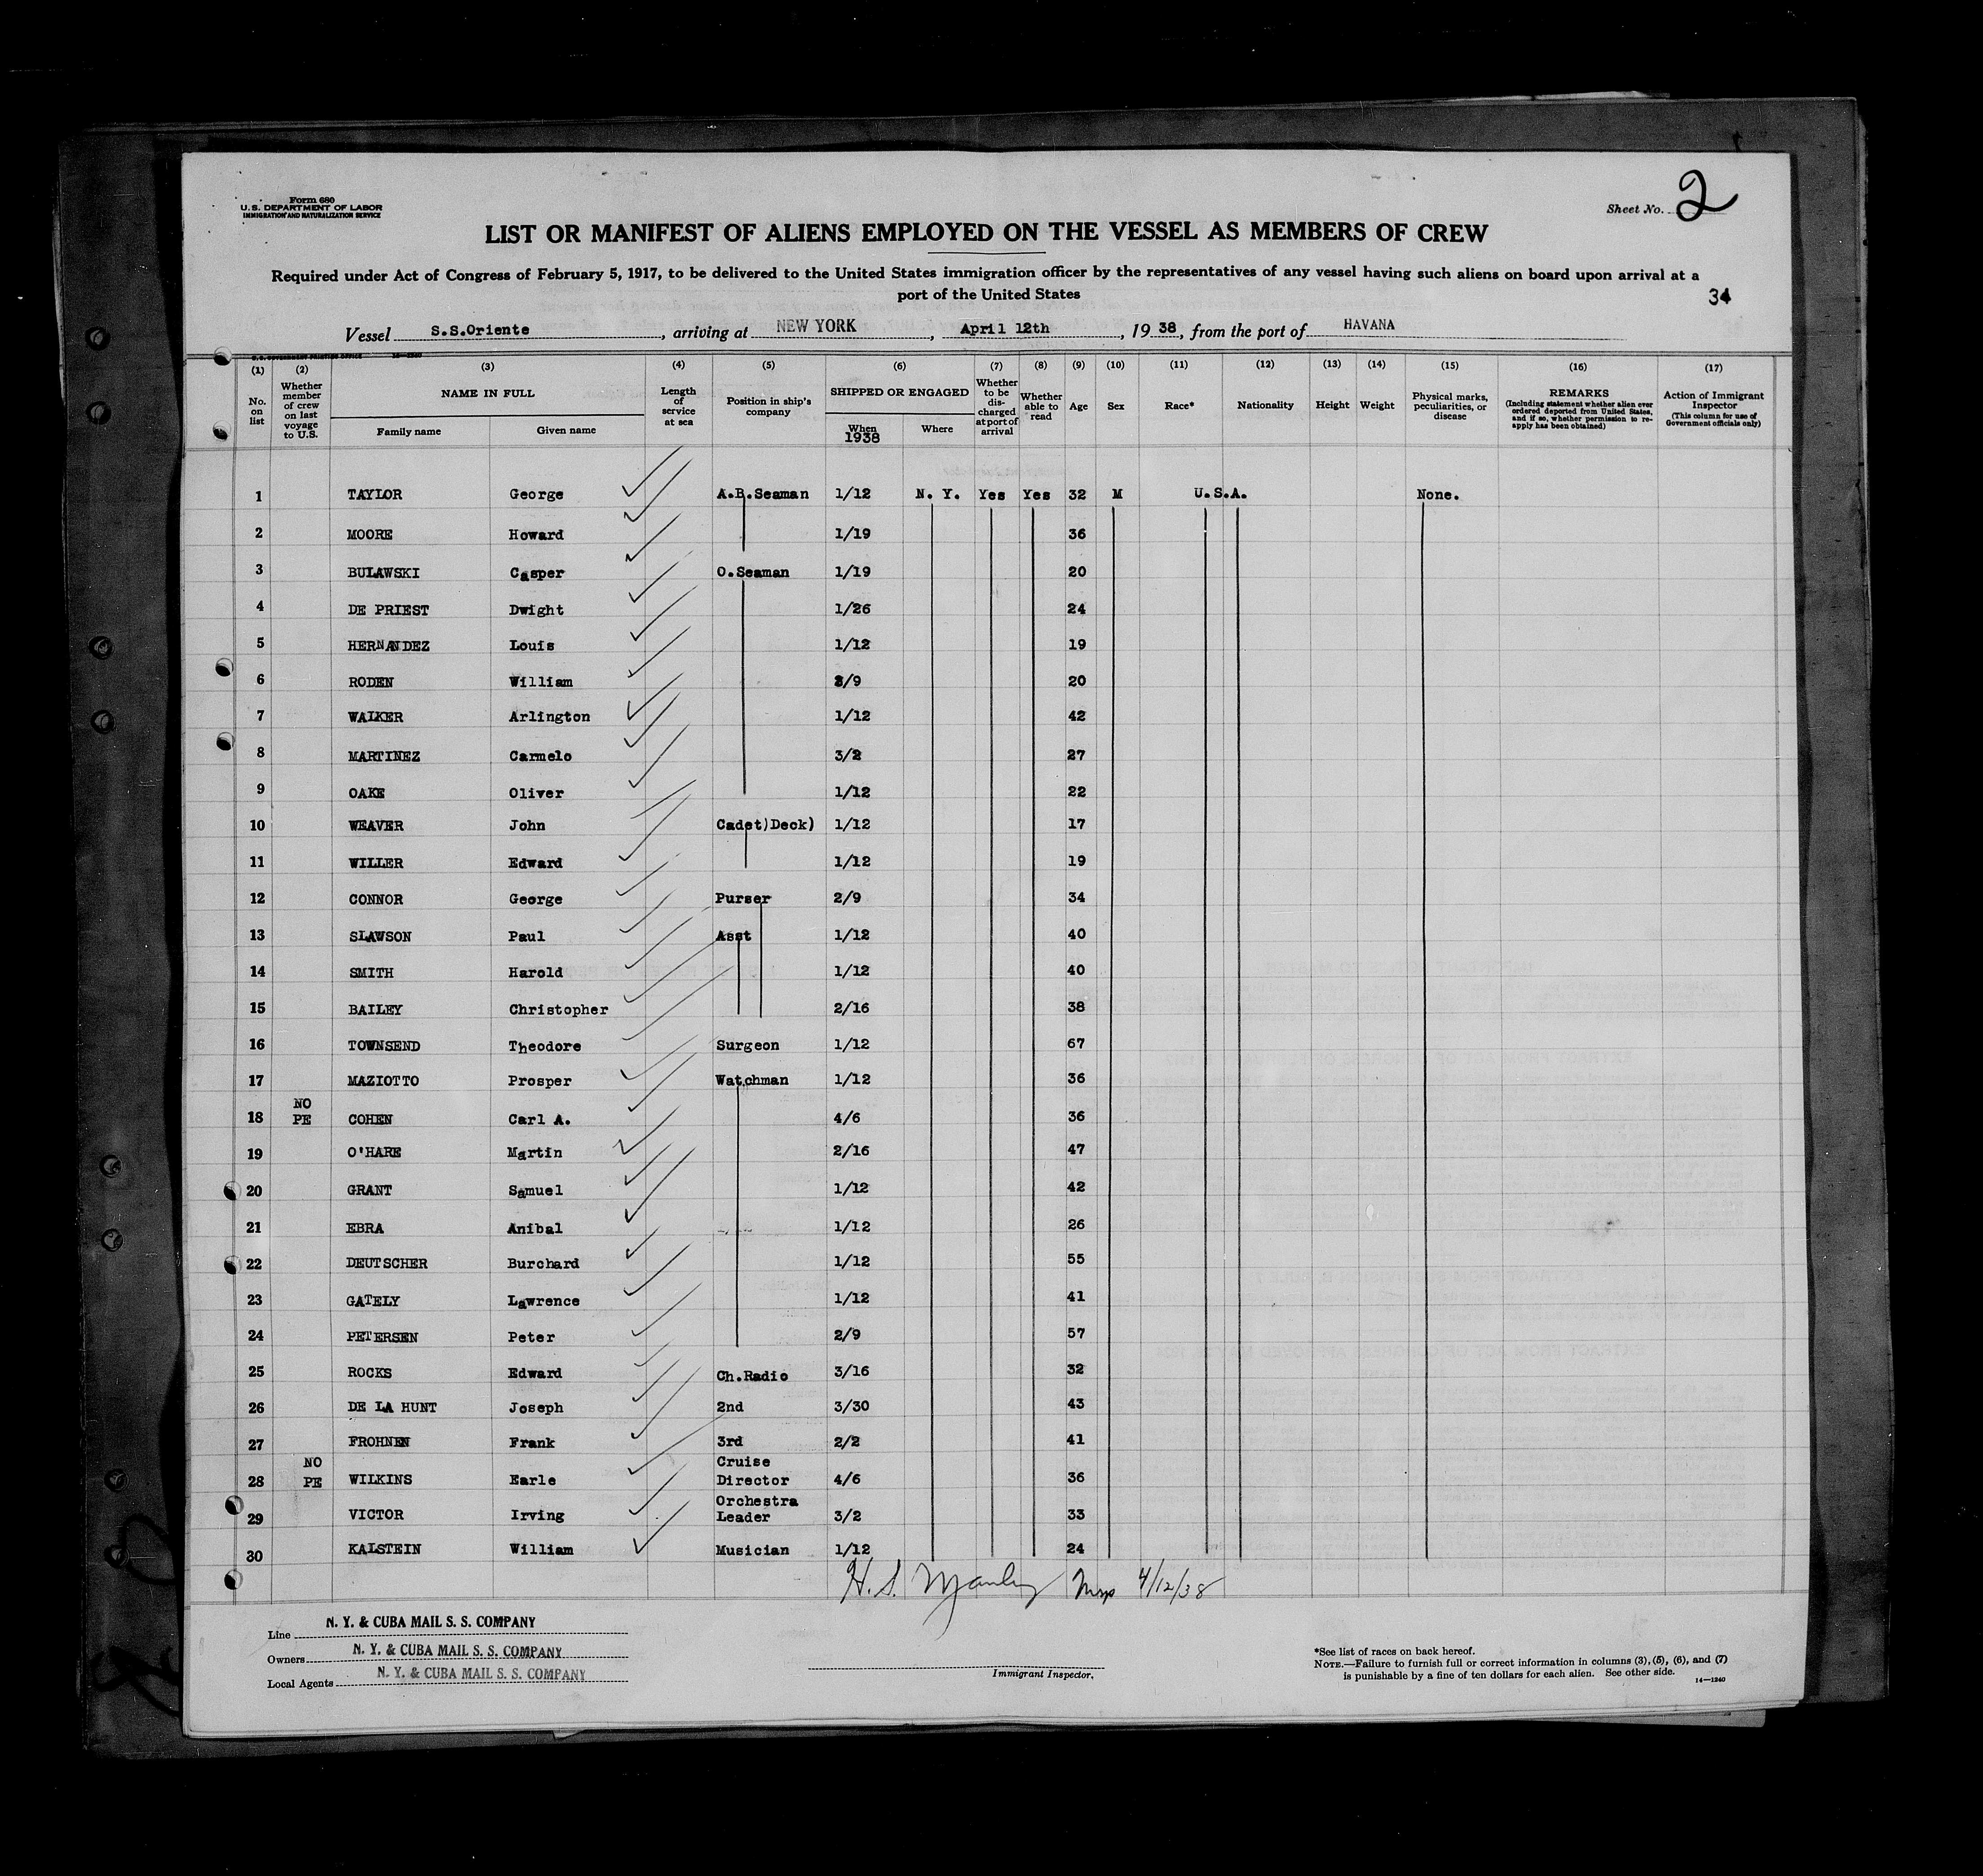 Form 680
U. S. DEPARTMENT OF LABOR
IMMIGRATION AND NATURALIZATION SERVICE
Sheet No. 2
LIST OR MANIFEST OF ALIENS EMPLOYED ON THE VESSEL AS MEMBERS OF CREW
Required under Act of Congress of February 5, 1917, to be delivered to the United States immigration officer by the representatives of any vessel having such aliens on board upon arrival at a
port of the United States
34
Vessel S.S.Oriente, arriving at NEW YORK, April 12th, 1938, from the port of HAVANA
U.S. GOVERNMENT PRINTING OFFICE 14—1240
(1) No. on list
(2) Whether member of crew on last voyage to U.S.
(3) NAME IN FULL Family name Given name
(4) Length of service at sea
(5) Position in ship's company
(6) SHIPPED OR ENGAGED When 1938 Where
(7) Whether to be discharged at port of arrival
(8) Whether able to read
(9) Age
(10) Sex
(11) Race*
(12) Nationality
(13) Height
(14) Weight
(15) Physical marks, peculiarities, or disease
(16) REMARKS (Including statement whether alien ever ordered deported from United States, and if so, whether permission to re-apply has been obtained)
(17) Action of Immigrant Inspector (This column for use of Government officials only)
1 TAYLOR George A.B.Seaman 1/12 N. Y. Yes Yes 32 M U.S.A. None.
2 MOORE Howard 1/19 36
3 BULAWSKI Casper O.Seaman 1/19 20
4 DE PRIEST Dwight 1/26 24
5 HERNANDEZ Louis 1/12 19
6 RODEN William 3/9 20
7 WALKER Arlington 1/12 42
8 MARTINEZ Carmelo 3/2 27
9 OAKE Oliver 1/12 22
10 WEAVER John Cadet)Deck) 1/12 17
11 WILLER Edward 1/12 19
12 CONNOR George Purser 2/9 34
13 SLAWSON Paul Asst 1/12 40
14 SMITH Harold 1/12 40
15 BAILEY Christopher 2/16 38
16 TOWNSEND Theodore Surgeon 1/12 67
17 MAZIOTTO Prosper Watchman 1/12 36
18 NO PE COHEN Carl A. 4/6 36
19 O'HARE Martin 2/16 47
20 GRANT Samuel 1/12 42
21 EBRA Anibal 1/12 26
22 DEUTSCHER Burchard 1/12 55
23 GATELY Lawrence 1/12 41
24 PETERSEN Peter 2/9 57
25 ROCKS Edward Ch.Radio 3/16 32
26 DE LA HUNT Joseph 2nd 3/30 43
27 FROHNEN Frank 3rd 2/2 41
28 NO PE WILKINS Earle Cruise Director 4/6 36
29 VICTOR Irving Orchestra Leader 3/2 33
30 KALSTEIN William Musician 1/12 24
H. S. Manley 4/12/38
Line N. Y. & CUBA MAIL S. S. COMPANY
Owners N. Y. & CUBA MAIL S. S. COMPANY
Local Agents N. Y. & CUBA MAIL S. S. COMPANY
Immigrant Inspector.
*See list of races on back hereof.
NOTE.—Failure to furnish full or correct information in columns (3), (5), (6), and (7)
is punishable by a fine of ten dollars for each alien. See other side.
14—1240